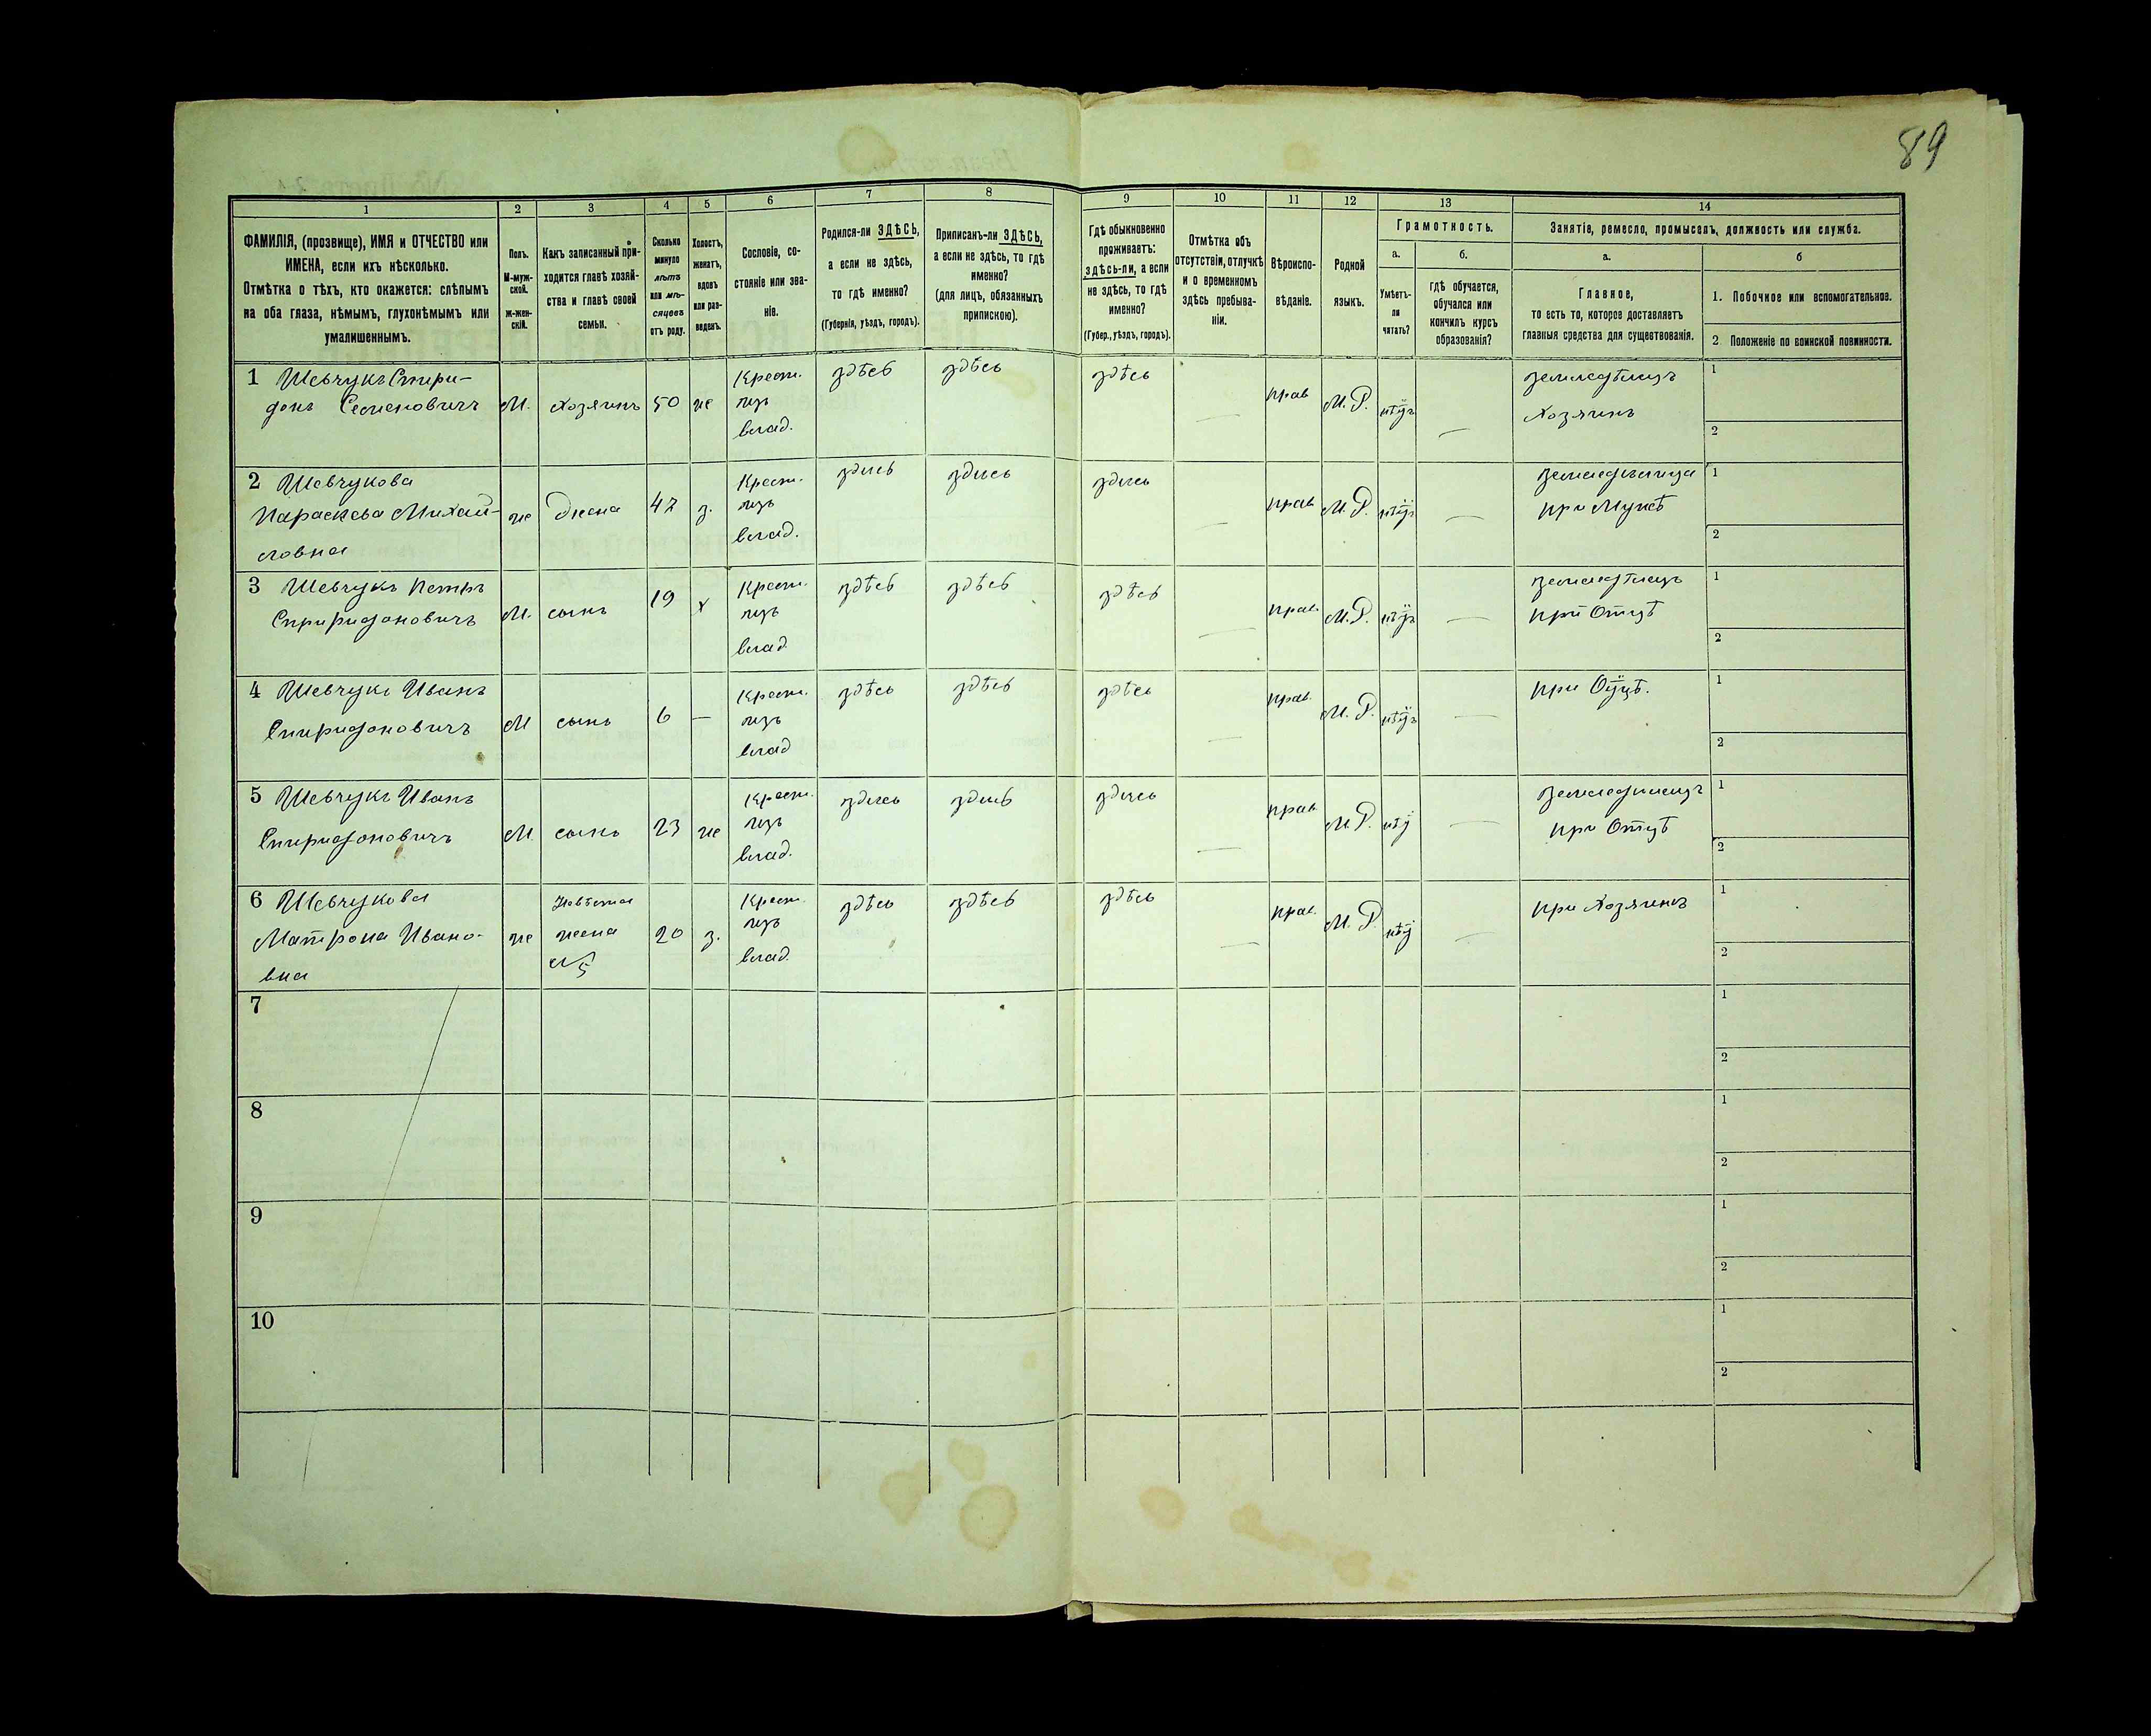 89
1
2
3
4
5
6
7
8
9
10
11
12
13
14
ФАМИЛІЯ, (прозвище), ИМЯ и ОТЧЕСТВО или
ИМЕНА, если ихъ нѣсколько.
Отмѣтка о тѣхъ, кто окажется: слѣпымъ
на оба глаза, нѣмымъ, глухонѣмымъ или
умалишеннымъ.
Полъ.
М-муж-
ской.
Ж-жен-
скій.
Какъ записанный при-
ходится главѣ хозяй-
ства и главѣ своей
семьи.
Сколько
минуло
лѣтъ
или мѣ-
сяцевъ
отъ роду.
Холостъ,
женатъ,
вдовъ
или раз-
веденъ.
Сословіе, со-
стояніе или зва-
ніе.
Родился-ли ЗДѢСЬ,
а если не здѣсь,
то гдѣ именно?
(Губернія, уѣздъ, городъ).
Приписанъ-ли ЗДѢСЬ,
а если не здѣсь, то гдѣ
именно?
(для лицъ, обязанныхъ
припискою).
Гдѣ обыкновенно
проживаетъ:
здѣсь-ли, а если
не здѣсь, то гдѣ
именно?
(Губер., уѣздъ, городъ).
Отмѣтка объ
отсутствіи, отлучкѣ
и о временномъ
здѣсь пребыва-
ніи.
Вѣроиспо-
вѣданіе.
Родной
языкъ.
Грамотность.
а.
Умѣетъ-
ли
читать?
б.
гдѣ обучается,
обучался или
кончилъ курсъ
образованія?
Занятіе, ремесло, промыселъ, должность или служба.
а.
Главное,
то есть то, которое доставляетъ
главныя средства для существованія.
б
1. Побочное или вспомогательное.
2 Положеніе по воинской повинности.
1 Шевчукъ Спири-
донъ Семеновичъ
М.
Хозяинъ
50
же
Крест.
изъ
влад.
здѣсь
здѣсь
здѣсь
—
прав
М. Р.
нѣтъ
—
земледѣлецъ
Хозяинъ
1
2
2 Шевчукова
Параскева Михай-
ловна
же
жена
42
з.
Крест.
изъ
влад.
здѣсь
здѣсь
здѣсь
—
прав
М. Р.
нѣтъ
—
земледѣлица
при Мужѣ
1
2
3 Шевчукъ Петръ
Спиридоновичъ
М.
сынъ
19
х
Крест.
изъ
влад.
здѣсь
здѣсь
здѣсь
—
прав.
М. Р.
нѣтъ
—
земледѣлецъ
при Отцѣ
1
2
4 Шевчукъ Иванъ
Спиридоновичъ
М
сынъ
6
—
Крест.
изъ
влад
здѣсь
здѣсь
здѣсь
—
прав.
М. Р.
нѣтъ
—
при Отцѣ.
1
2
5 Шевчукъ Иванъ
Спиридоновичъ
М
сынъ
23
же
Крест.
изъ
влад.
здѣсь
здѣсь
здѣсь
—
прав.
М. Р.
нѣт
—
земледѣлецъ
при Отцѣ
1
2
6 Шевчукова
Матрона Ивано-
вна
же
Невѣстка
жена
№5
20
з.
Крест.
изъ
влад.
здѣсь
здѣсь
здѣсь
—
прав.
М. Р.
нѣт
—
при Хозяинѣ
1
2
7
1
2
8
1
2
9
1
2
10
1
2